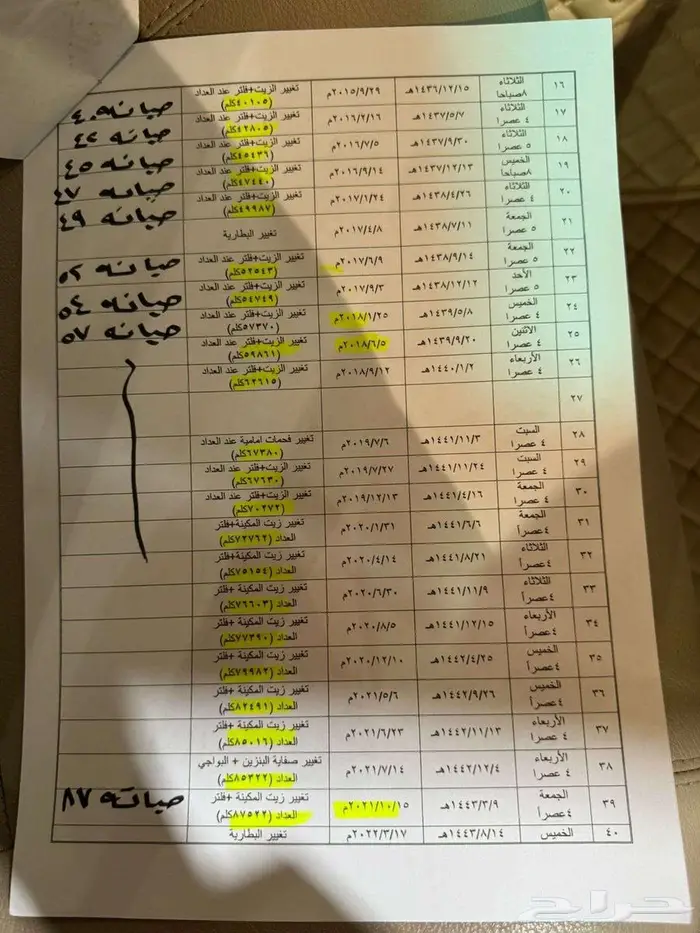 ١٦ الثلاثاء ٨صباحا ١٤٣٦/١٢/١٥هـ ٢٠١٥/٩/٢٩م تغيير الزيت+فلتر عند العداد (٤٠١٠٥كلم) صيانه ٤٠
١٧ الثلاثاء ٤ عصرا ١٤٣٧/٥/٧هـ ٢٠١٦/٢/١٦م تغيير الزيت+فلتر عند العداد (٤٢٨٠٥كلم) صيانه ٤٢
١٨ الثلاثاء ٥ عصرا ١٤٣٧/٩/٣٠هـ ٢٠١٦/٧/٥م تغيير الزيت+فلتر عند العداد (٤٥٤٣٦كلم) صيانه ٤٥
١٩ الخميس ٨صباحا ١٤٣٧/١٢/١٣هـ ٢٠١٦/٩/١٤م تغيير الزيت+فلتر عند العداد (٤٧٤٤٠كلم) صيانه ٤٧
٢٠ الثلاثاء ٤ عصرا ١٤٣٨/٤/٢٦هـ ٢٠١٧/١/٢٤م تغيير الزيت+فلتر عند العداد (٤٩٩٨٧كلم) صيانه ٤٩
٢١ الجمعة ٥ عصرا ١٤٣٨/٧/١١هـ ٢٠١٧/٤/٨م تغيير البطارية
٢٢ الجمعة ٥ عصرا ١٤٣٨/٩/١٤هـ ٢٠١٧/٦/٩م تغيير الزيت+فلتر عند العداد (٥٢٥٤٣كلم) صيانه ٥٢
٢٣ الأحد ٥ عصرا ١٤٣٨/١٢/١٢هـ ٢٠١٧/٩/٣م تغيير الزيت+فلتر عند العداد (٥٤٧٤٩كلم) صيانه ٥٤
٢٤ الخميس ٤ عصرا ١٤٣٩/٥/٨هـ ٢٠١٨/١/٢٥م تغيير الزيت+فلتر عند العداد (٥٧٣٧٠كلم) صيانه ٥٧
٢٥ الاثنين ٤ عصرا ١٤٣٩/٩/٢٠هـ ٢٠١٨/٦/٥م تغيير الزيت+فلتر عند العداد (٥٩٨٦١كلم)
٢٦ الأربعاء ٤ عصرا ١٤٤٠/١/٢هـ ٢٠١٨/٩/١٢م تغيير الزيت+فلتر عند العداد (٦٢٦١٥كلم)
٢٧
٢٨ السبت ٤ عصرا ١٤٤١/١١/٣هـ ٢٠١٩/٧/٦م تغيير فحمات امامية عند العداد (٦٧٣٨٠كلم)
٢٩ السبت ٤ عصرا ١٤٤١/١١/٢٤هـ ٢٠١٩/٧/٢٧م تغيير الزيت+فلتر عند العداد (٦٧٦٣٠كلم)
٣٠ الجمعة ٤ عصرا ١٤٤١/٤/١٦هـ ٢٠١٩/١٢/١٣م تغيير الزيت+فلتر عند العداد (٧٠٢٧٢كلم)
٣١ الجمعة ٤عصراً ١٤٤١/٦/٦هـ ٢٠٢٠/١/٣١م تغيير زيت المكينة+فلتر العداد (٧٢٧٦٢كلم)
٣٢ الثلاثاء ٤عصراً ١٤٤١/٨/٢١هـ ٢٠٢٠/٤/١٤م تغيير زيت المكينة+فلتر العداد (٧٥١٥٤كلم)
٣٣ الثلاثاء ٤عصراً ١٤٤١/١١/٩هـ ٢٠٢٠/٦/٣٠م تغيير زيت المكينة +فلتر العداد (٧٦٦٠٣كلم)
٣٤ الأربعاء ٤عصراً ١٤٤١/١٢/١٥هـ ٢٠٢٠/٨/٥م تغيير زيت المكينة +فلتر العداد (٧٧٣٩٠كلم)
٣٥ الخميس ٤عصراً ١٤٤٢/٤/٢٥هـ ٢٠٢٠/١٢/١٠م تغيير زيت المكينة +فلتر العداد (٧٩٩٨٢كلم)
٣٦ الخميس ٤عصراً ١٤٤٢/٩/٢٦هـ ٢٠٢١/٥/٦م تغيير زيت المكينة +فلتر العداد (٨٢٤٩١كلم)
٣٧ الأربعاء ٤ عصرا ١٤٤٢/١١/١٣هـ ٢٠٢١/٦/٢٣م تغيير زيت المكينة +فلتر العداد (٨٥٠١٦كلم)
٣٨ الأربعاء ٤ عصرا ١٤٤٢/١٢/٤هـ ٢٠٢١/٧/١٤م تغيير صفاية البنزين + البواجي العداد (٨٥٣٢٢كلم)
٣٩ الجمعة ٤عصراً ١٤٤٣/٣/٩هـ ٢٠٢١/١٠/١٥م تغيير زيت المكينة +فلتر العداد (٨٧٥٢٢كلم) صيانه ٨٧
٤٠ الخميس ١٤٤٣/٨/١٤هـ ٢٠٢٢/٣/١٧م تغيير البطارية
حراج